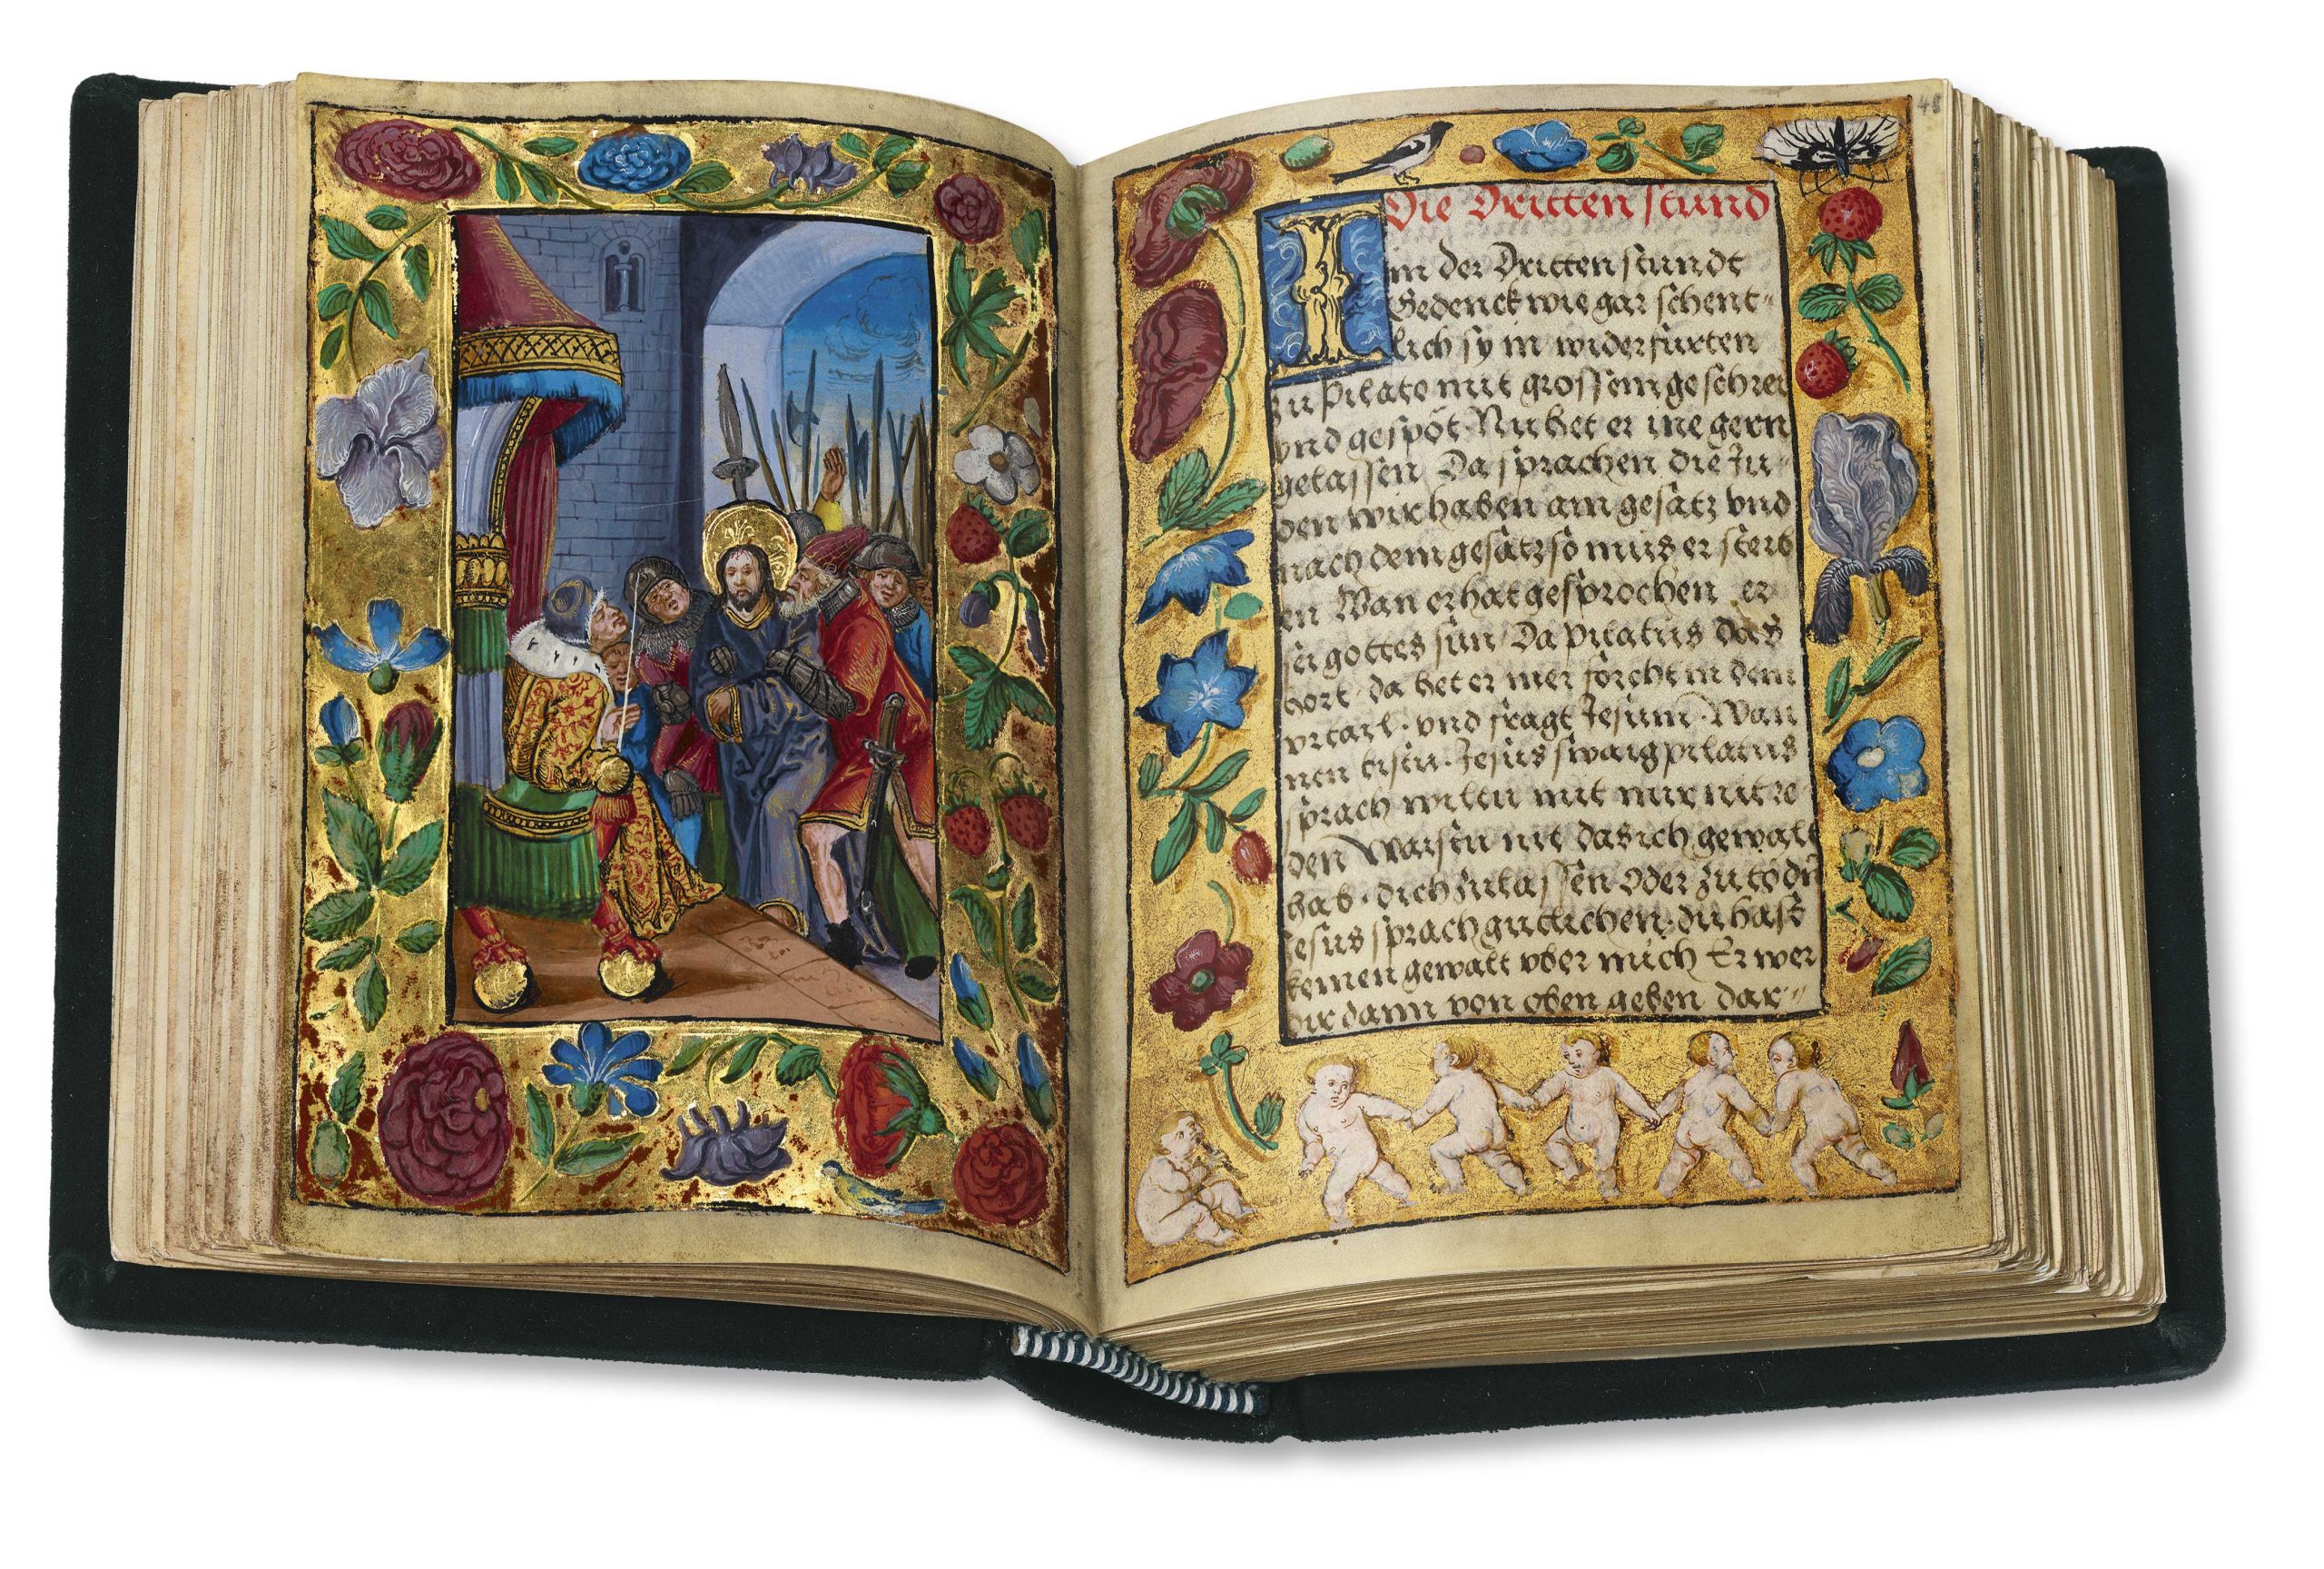 48
Die Dritten stund
In der Dritten stundt
Gedenck wie gar schent-
lich sy in widerfürten
zu pilato mit grossem geschrei
vnd gespöt. Nu het er ine gern
gelassen Da sprachen die Ju-
den wir haben am gesätz vnd
nach dem gesätz so mus er sterb
en Wan er hat gesprochen er
sei gottes sun Da pilatus das
hort da het er mer forcht in dem
vrtayl. vnd fragt Jesum. Wan
nen bistu. Jesus swaig pilatus
sprach wiltu mit mir nit re-
den Waistu nit das ich gewalt
hab. dich zulassen Oder zu tödn̄
Jesus sprach gutlichen. du hast
keinen gewalt vber mich Er wer
dir dann von oben geben dar-